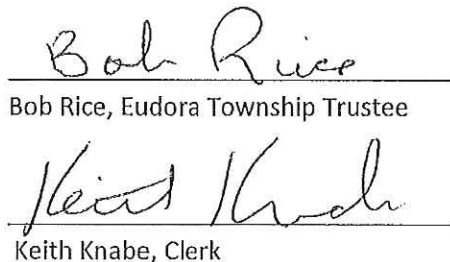 Bob Rice
Bob Rice, Eudora Township Trustee
Keith Knabe
Keith Knabe, Clerk